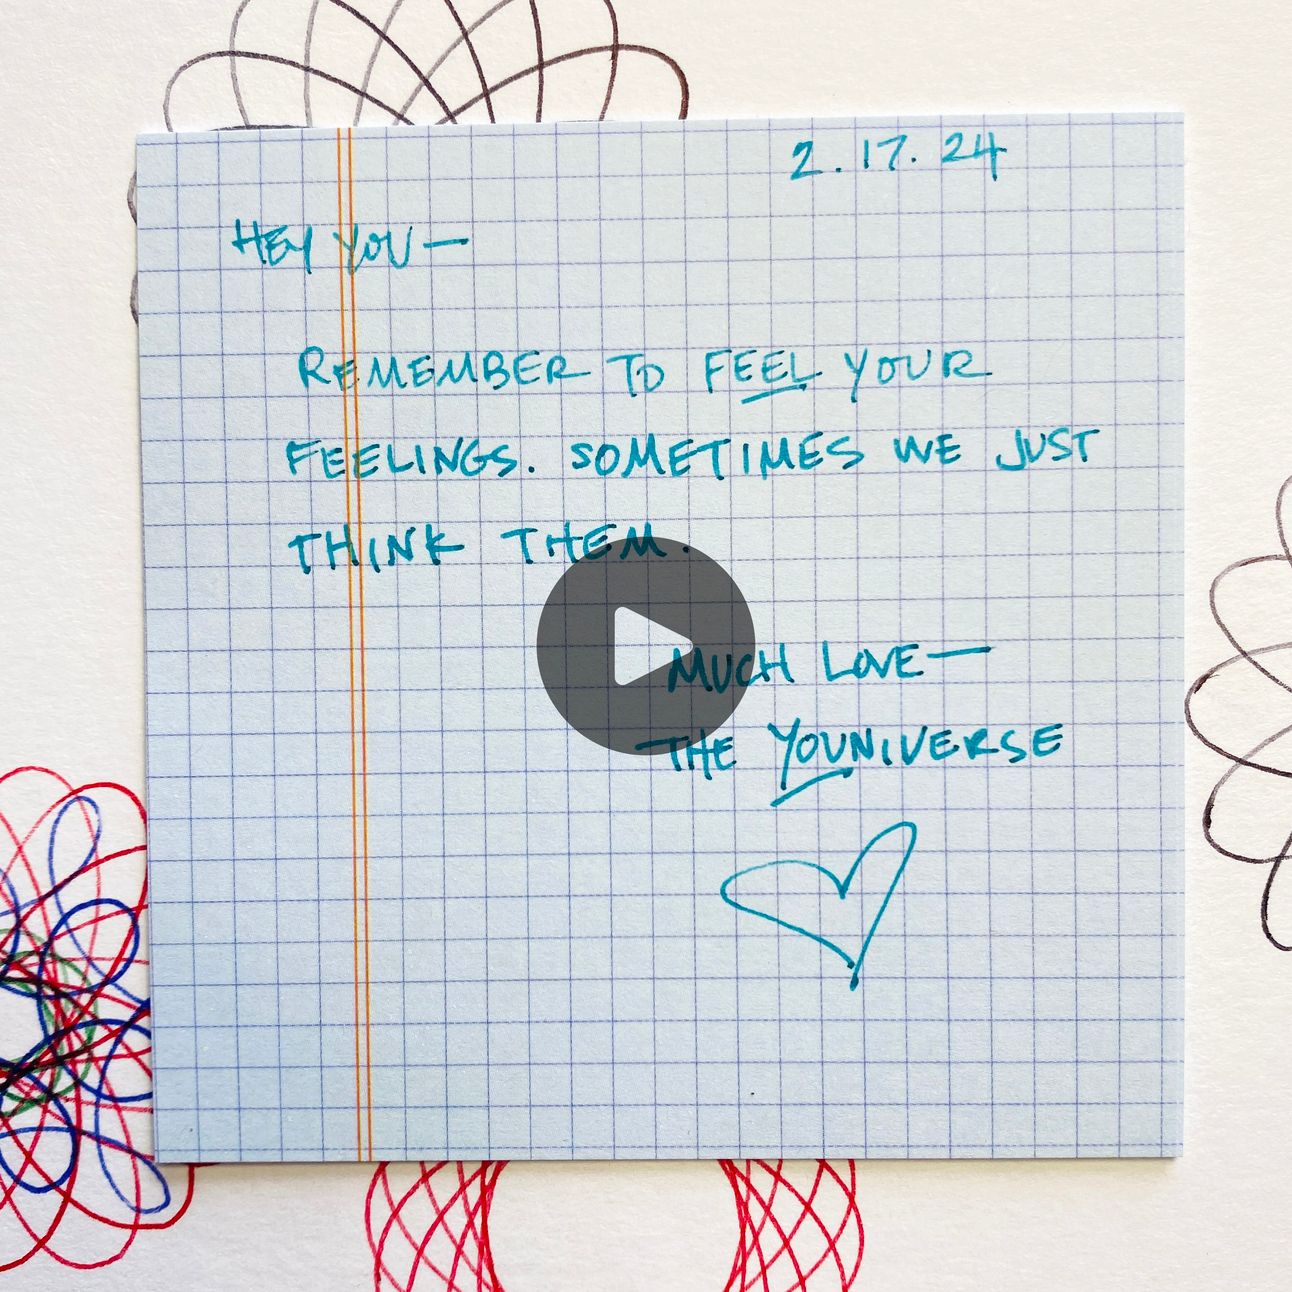 2.17.24
HEY YOU—
REMEMBER TO FEEL YOUR
FEELINGS. SOMETIMES WE JUST
THINK THEM.
MUCH LOVE—
THE YOUNIVERSE